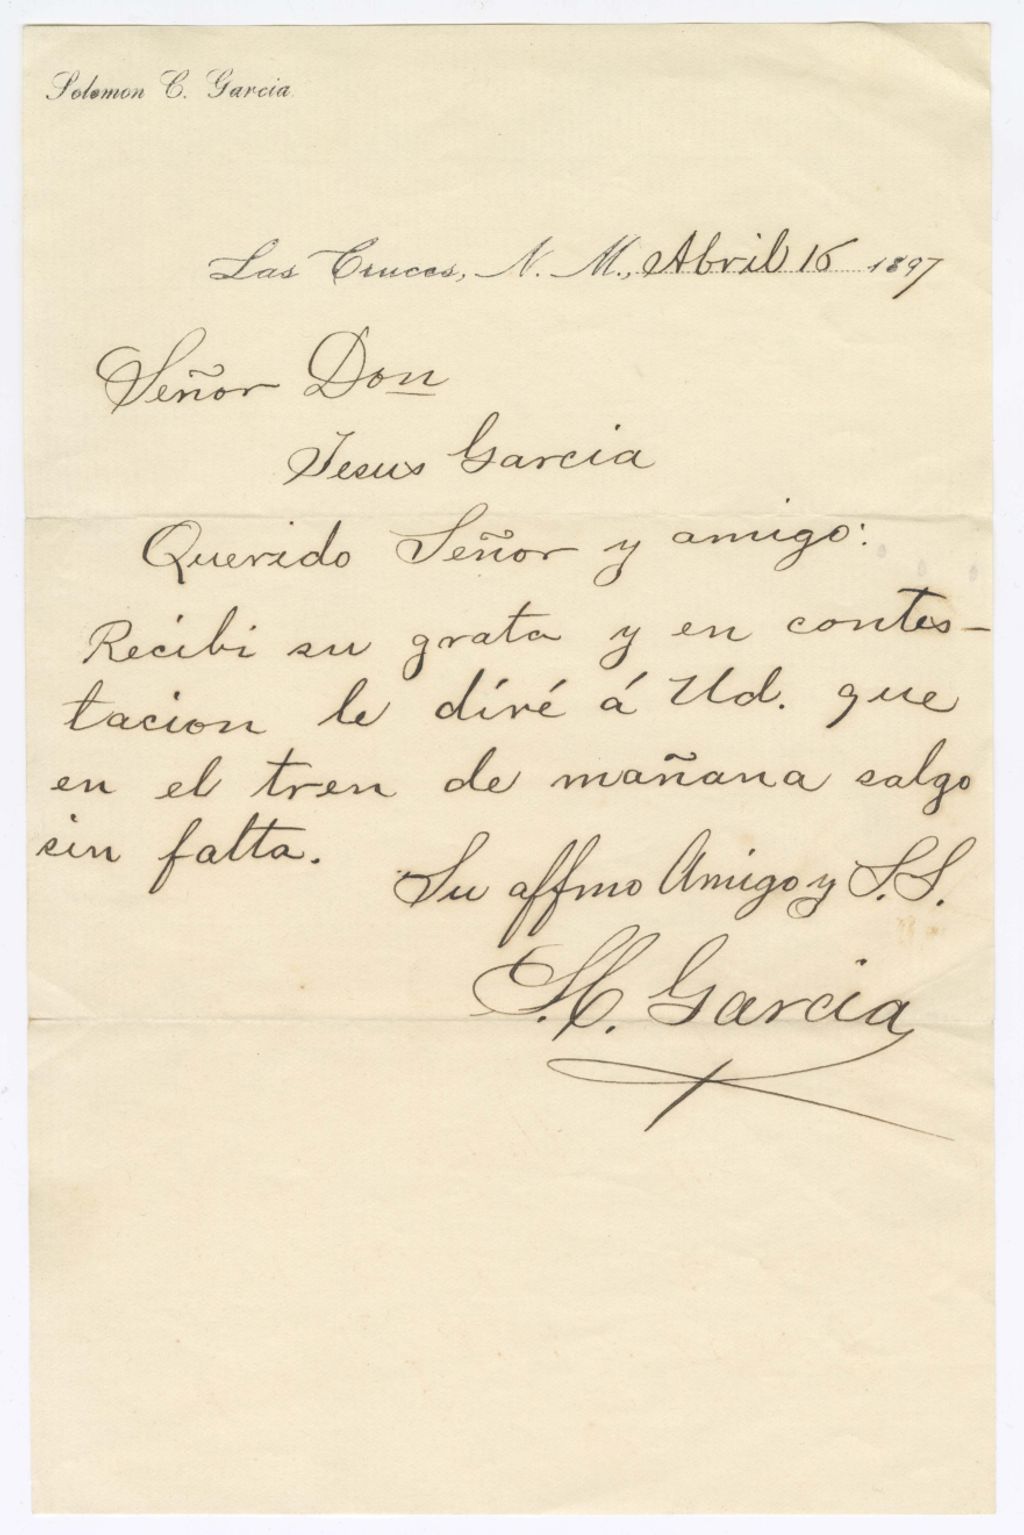 Solomon C. Garcia
Las Cruces, N. M., Abril 16 1897
Señor Don
Jesus Garcia
Querido Señor y amigo:
Recibi su grata y en contes-
tacion le diré á Ud. que
en el tren de mañana salgo
sin falta.
Su affmo Amigo y S.S.
S.C. Garcia